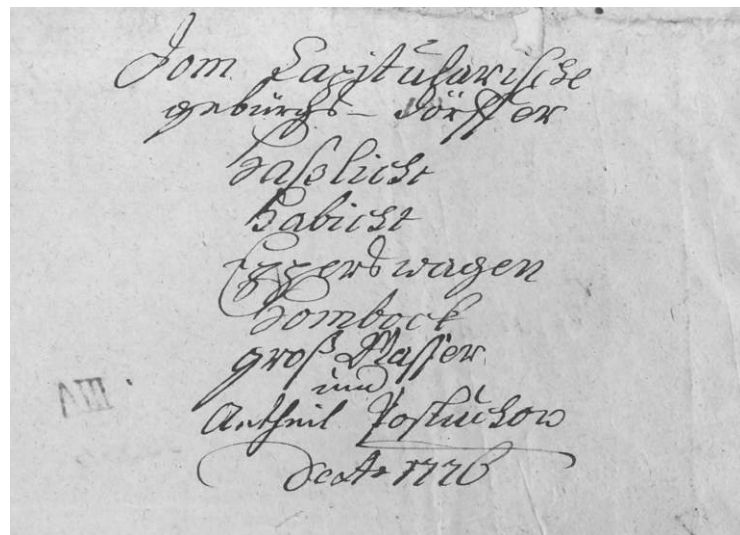 Dom Capitularische
gebürgs- Dörffer
Haslicht
Habicht
Epperswagen
Hombock
groß Wasser
und
Antheil Posluchow
de Ao 1776
VIII